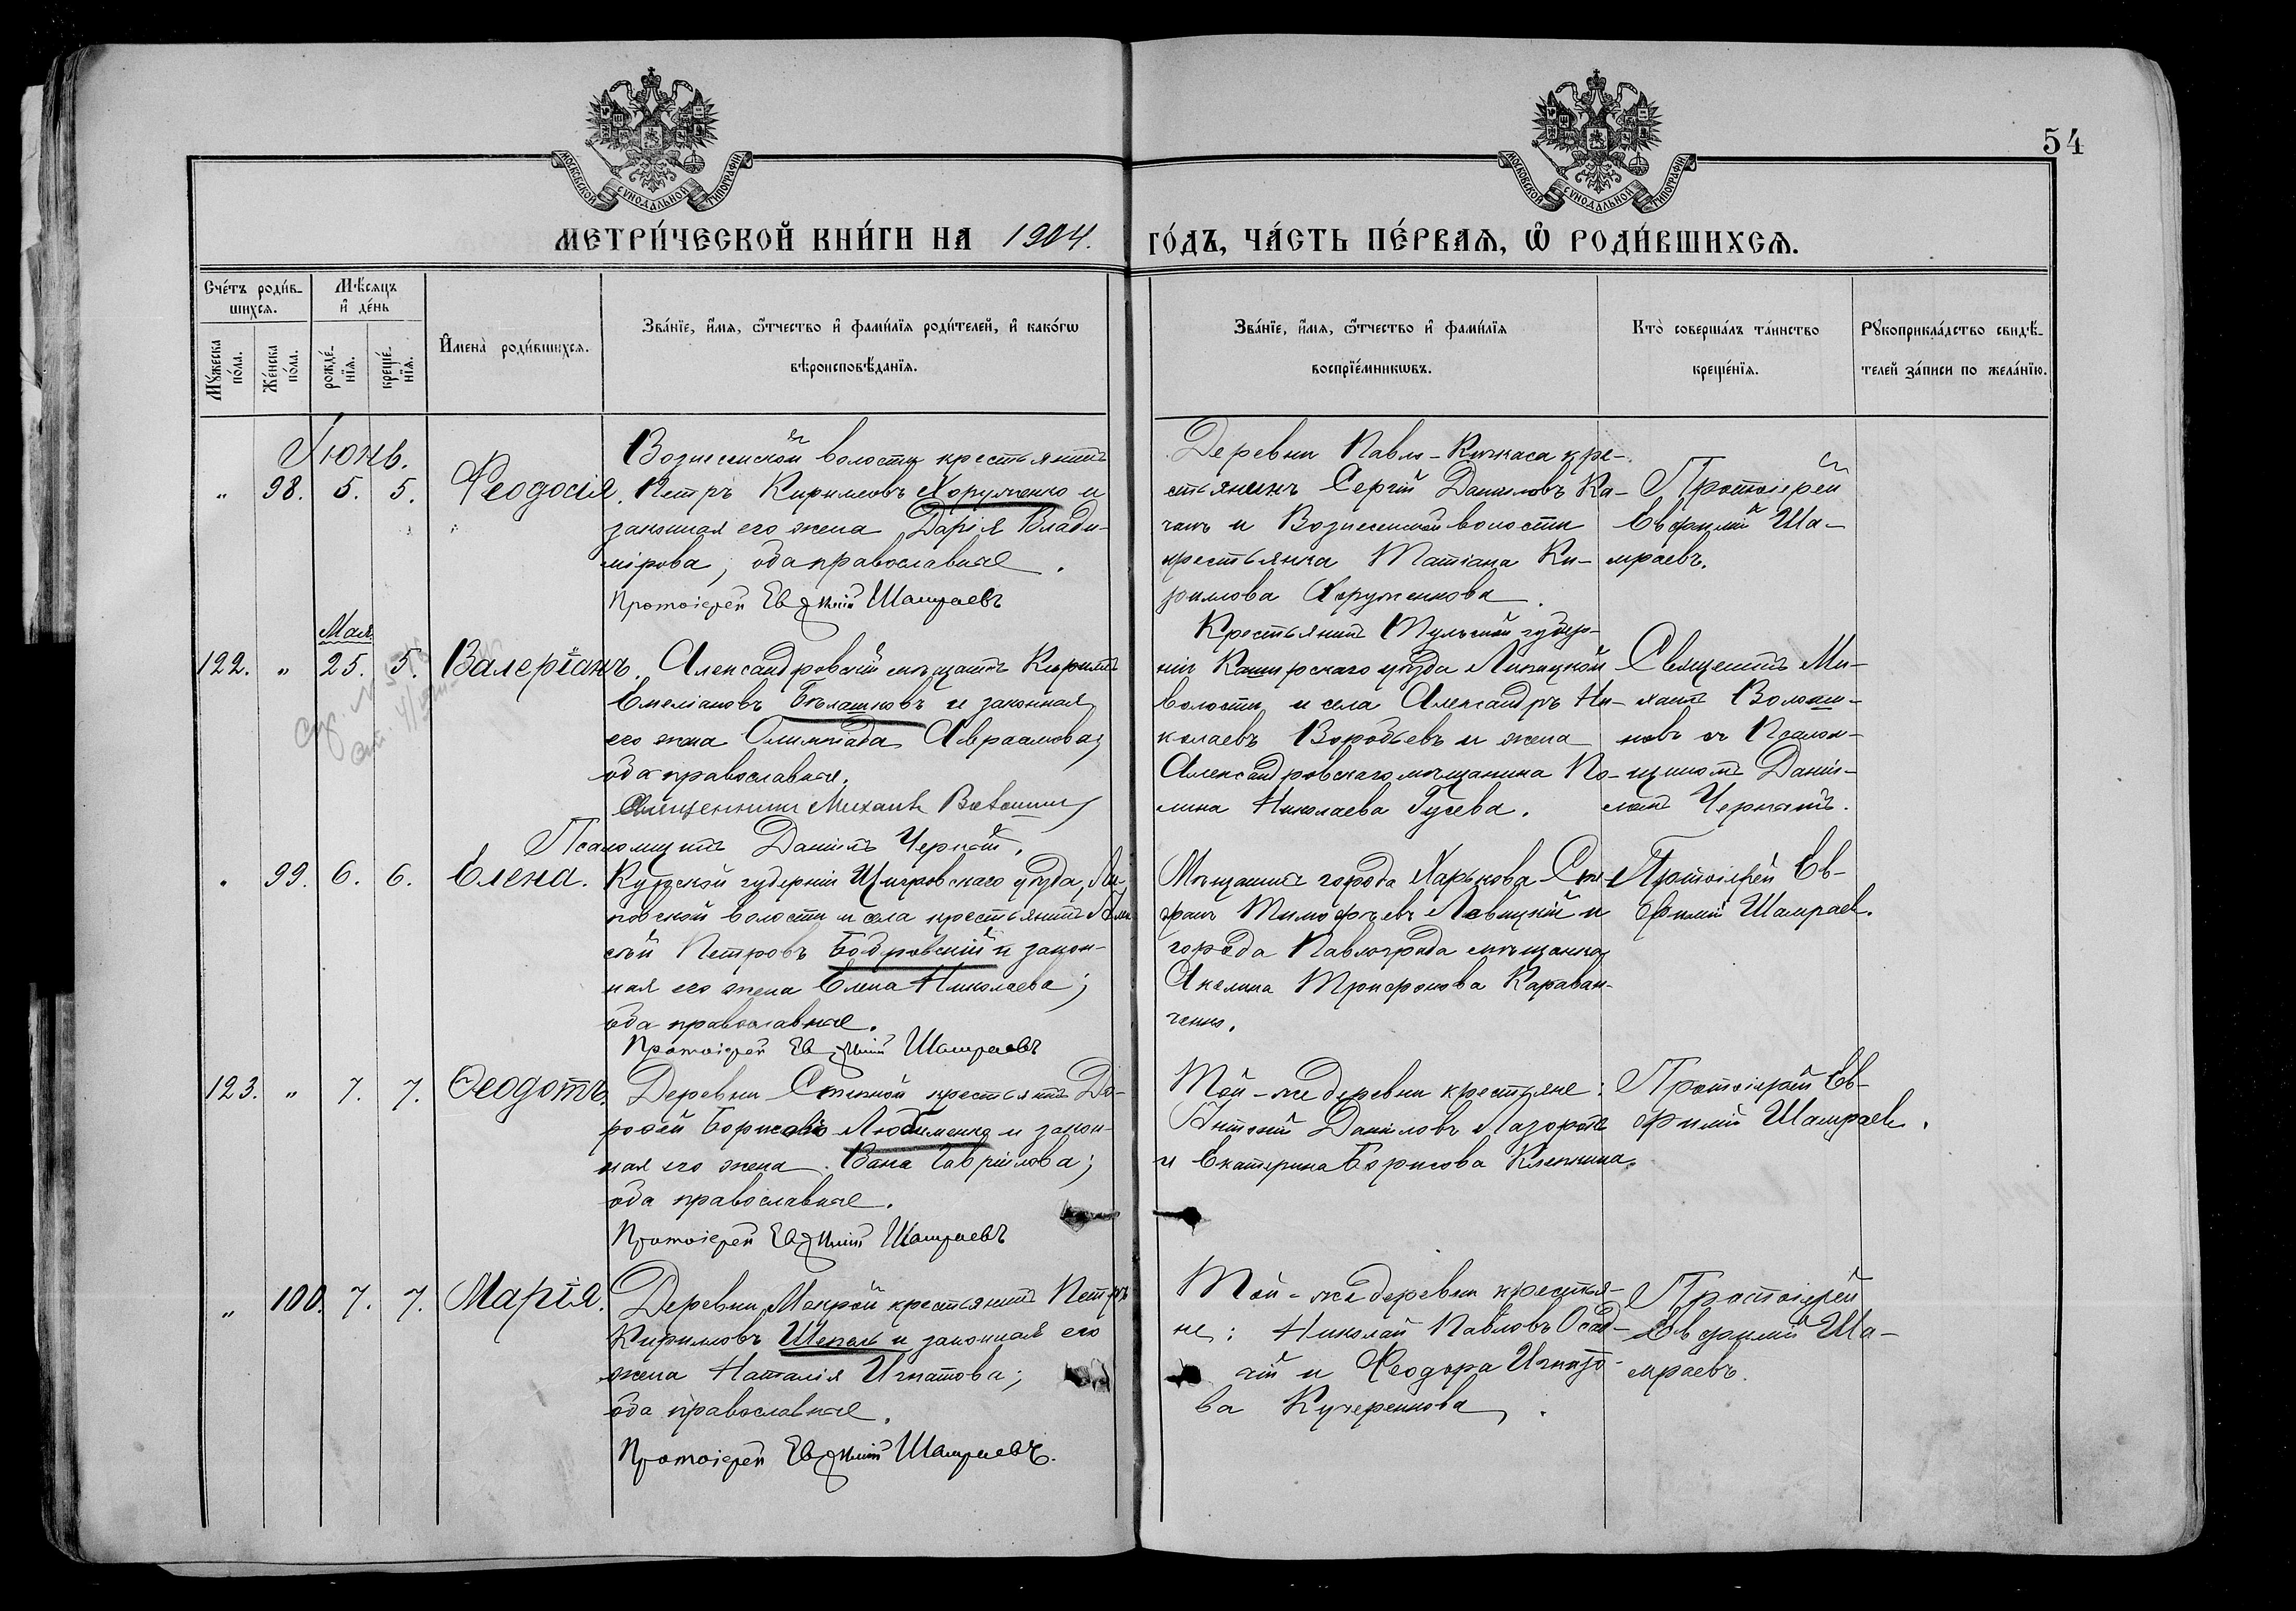 54
МОСКОВСКОЙ СУНОДАЛЬНОЙ ТИПОГРАФІИ
МОСКОВСКОЙ СУНОДАЛЬНОЙ ТИПОГРАФІИ
МЕТРИ́ЧЕСКОЙ КНИ́ГИ НА 1904. ГО́ДЪ, ЧА́СТЬ ПЕ́РВАѦ, Ѿ РОДИ́ВШИХСѦ.
Сче́тъ роди́в-
шихсѧ.
Мѣ́сѧцъ
и҆ де́нь
Мꙋ́жеска
по́ла.
Же́нска
по́ла.
рожде́-
нїѧ.
креще́-
нїѧ.
И҆мена̀ роди́вшихсѧ.
Зва́нїе, и҆́мѧ, ѻ҆́тчество и҆ фами́лїѧ роди́телей, и҆ како́гѡ
вѣроисповѣ́данїѧ.
Зва́нїе, и҆́мѧ, ѻ҆́тчество и҆ фами́лїѧ
воспрїе́мникѡвъ.
Кто̀ соверша́лъ та́инство
креще́нїѧ.
Рꙋкоприкла́дство свидѣ́-
телей за́писи по жела́нїю.
Іюнь.
" 98. 5. 5. Феодосія.
Вознесенской волости крестьянинъ
Петръ Кирилловъ Хорунженко и
законная его жена Дарія Влади-
мірова, оба православные.
Протоіерей Евфимій Шамраевъ
Деревни Павло-Кичкаса кре-
стьянинъ Сергій Даниловъ Ка-
чанъ и Вознесенской волости
крестьянка Татіана Ки-
риллова Хорунженкова.
Протоіерей
Евфимій Ша-
мраевъ.
Мая
122. " 25. 5. Валеріанъ.
Александровскій мѣщанинъ Кириллъ
Емеліановъ Бѣлашковъ и законная
его жена Олимпіада Авраамова;
оба православные.
Священникъ Михаилъ
Псаломщикъ Даніилъ Чернай.
Крестьянинъ Тульской губер-
ніи Каширскаго уѣзда Липицкой
волости и села Александръ Ни-
колаевъ Воробьевъ и жена
Александровскаго мѣщанина По-
лина Николаева Гусева.
Священникъ Ми-
хаилъ Волоши-
новъ съ Псалом-
щикомъ Даніи-
ломъ
" 99. 6. 6. Елена.
Курской губерніи Щигровскаго уѣзда, Ли-
повской волости и села крестьянинъ Але-
ксѣй Петровъ Бодровскій и закон-
ная его жена Елена Николаева;
оба православные.
Протоіерей Евфимій Шамраевъ
Мѣщанинъ города Харькова Сте-
фанъ Тимофѣевъ Левицкій и
города Павлограда мѣщанка
Акелина Трифонова Караван-
ченко.
Протоіерей Ев-
фимій Шамраевъ.
123. " 7. 7. Ѳеодотъ.
Деревни Степной крестьянинъ До-
рофей Борисовъ Любименко и закон-
ная его жена Гавріилова;
оба православные.
Протоіерей Евфимій Шамраевъ
Той-же деревни крестьяне:
Антоній Даніиловъ
и Екатерина Борисова
Протоіерей Ев-
фимій Шамраевъ.
" 100. 7. 7. Марія.
Деревни Мокрой крестьянинъ Петръ
Кирилловъ Шепель и законная его
жена Наталія Игнатова;
оба православные.
Протоіерей Евфимій Шамраевъ.
Той-же деревни крестья-
не: Николай Павловъ Осад-
чій и Феодора Игнато-
ва Кучеренкова.
Протоіерей
Евфимій Ша-
мраевъ.